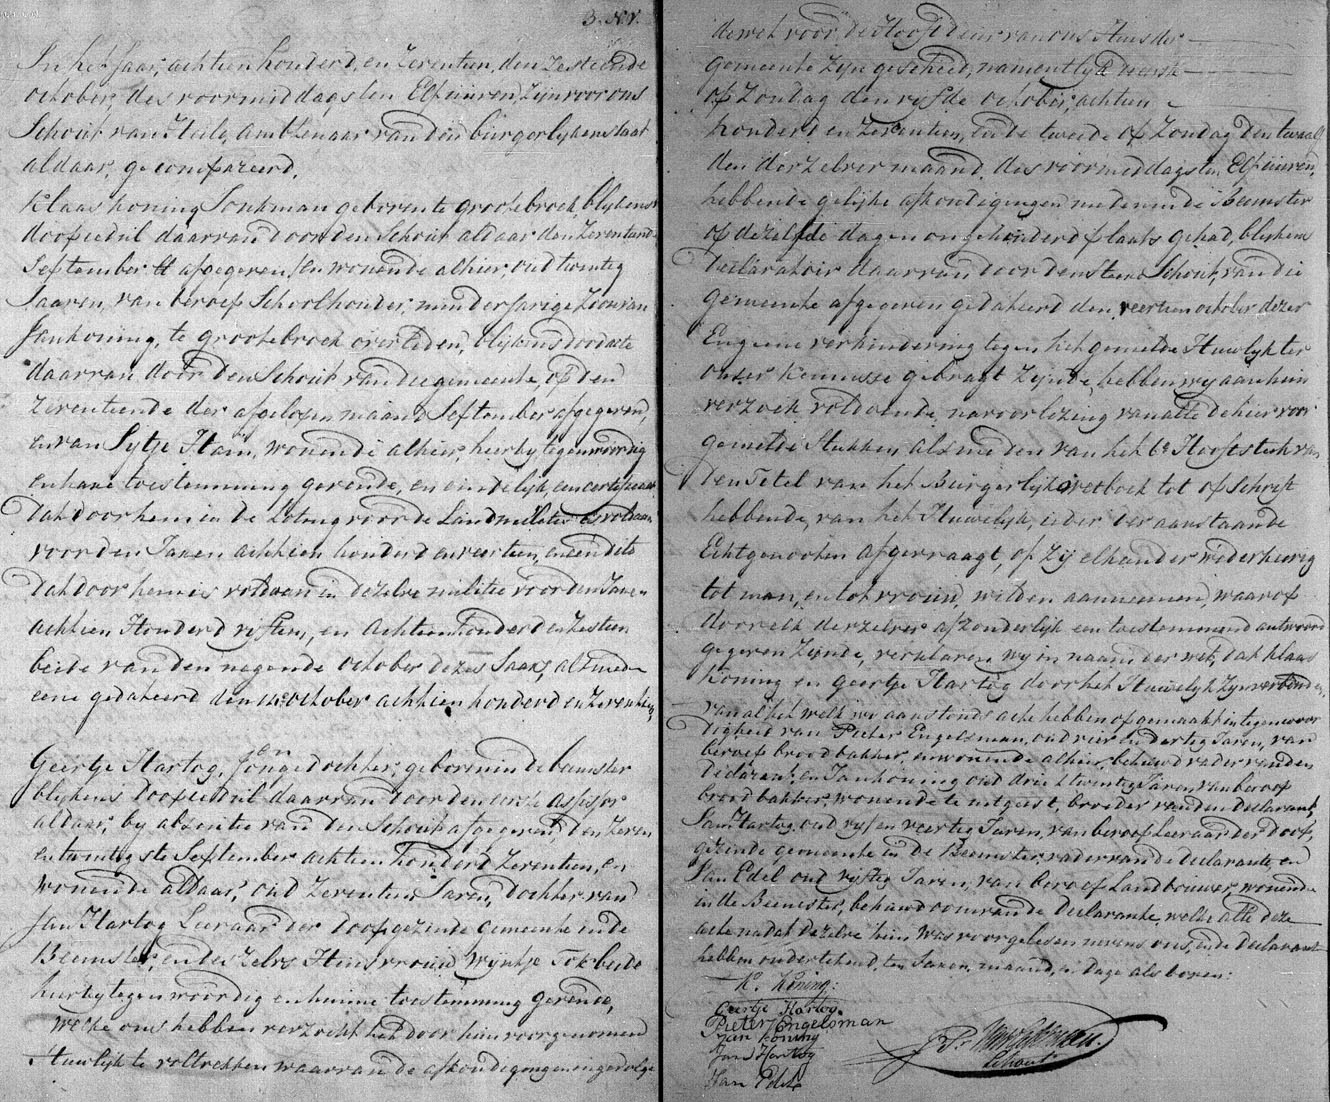 3. Nr.
In het Jaar, achtien honderd, en Zeventien, den Zestiende
october, des voormiddags ten Elf uuren, Zyn voor ons
Schout van Huile, ambtenaar van den burgerlyken staat
aldaar, gecompareerd.
Klaas Koning Jonkman geboren te grootebroek, blykens
doopcedul daarvan door den Schout aldaar den Zeventiende
September ll afgegeven, en wonende alhier, oud twintig
Jaaren, van beroep Schoolhouder, minderjarige Zoon van
Jan Koning, te grootebroek overleden, blykens doodacte
daarvan door den Schout van die gemeente, op den
Zeventiende der afgelopen maand September afgegeven,
en van Sytje Ham, wonende alhier, hierby tegenwoordig
en hare toestemming gevende, en eindelyk, een certificaat
dat door hem in de Loting voor de Land militie is voldaan
voor den Jaren achtien honderd en veertien, en een dito
dat door hem is voldaan in dezelve militie voor den Jaren
achtien Honderd vyftien, en Achtienhonderd en Zestien
beide van den negende october dezes Jaars, al mede
eene gedateerd den 14e october achtien honderd en Zeventien,
Geertje Hartog, Jonge dochter, geboren in de beemster
blykens Doopcedul daarvan door den eerste assessor
aldaar, by absentie van den Schout afgegeven, den Zeven
en twintigste September achtien honderd Zeventien, en
wonende aldaar, oud Zeventien Jaren, dochter van
Jan Hartog Leeraar der doopsgezinde gemeente in de
Beemster, en deszelvs Huisvrouw Wyntje Tok beide
hierby tegenwoordig en hunne toestemming gevende,
welke ons hebben verzocht het door hun voorgenomen
Huwlyk te voltrekken waarvan de afkondigingen ingevolge
de wet voor de Hooft deur van ons Huis der
gemeente Zyn geschied, namentlyk d' eerste
op Zondag den vyfde october, achtien
honderd en Zeventien, en de tweede op Zondag den twaalf
den derzelver maand, des voormiddags ten Elf uuren,
hebbende gelyke afkondigingen mede in de Beemster
op dezelfde dagen ongehinderd plaats gehad, blykens
Declaratoir daarvan door den Heere Schout, van die
gemeente afgegeven gedateerd den, veertien october dezes
En geene verhindering tegen het gemelde Huwlyk ter
onser kennisse gebragt Zynde, hebben wy aan hun
verzoek voldoende, na voorlezing van alle de hier voor
gemelde Stukken, als mede van het 6e Hooftstuk van
den Tetel van het Burgerlyk wetboek tot opschrift
hebbende, van het Huwelyk, ieder der aanstaande
Echtgenooten afgevraagt, of Zy elkander wederkeerig
tot man, en tot vrouw, wilden aanneemen, waarop
door elk derzelver afzonderlyk een toestemmend antwoord
gegeven Zynde, verklaren wy in naam der wet, dat Klaas
Koning en geertje Hartog door het Huwelyk Zyn verbonden,
van al het welk wy aanstonds acte hebben opgemaakt in tegenwoor
digheid van Pieter Engelsman, oud vier en dertig Jaren, van
beroep broodbakker, en wonende alhier, behuwd vader van den
declarant, en Jan Koning oud drie en twintig Jaren, van beroep
broodbakker, wonende te uitgeest, broeder van den Declarant,
Jan Hartog oud vyf en veertig Jaren, van beroep Leeraar der doops,
gezinde gemeente in de Beemster vader van de declarante, en
Jan Edel oud vyftig Jaren, van beroep Landbouwer, wonende
in de Beemster, behuwd oom van de declarante, welke alle deze
acte na dat dezelve hun was voorgelezen nevens ons, en de declarant
hebben ondertekend, ten Jaren, maand, en dage als boven:
K. Koning:
Geertje Hartog.
Pieter Engelsman
Jan Koning
Jan Hartog
Jan Edel
Schout